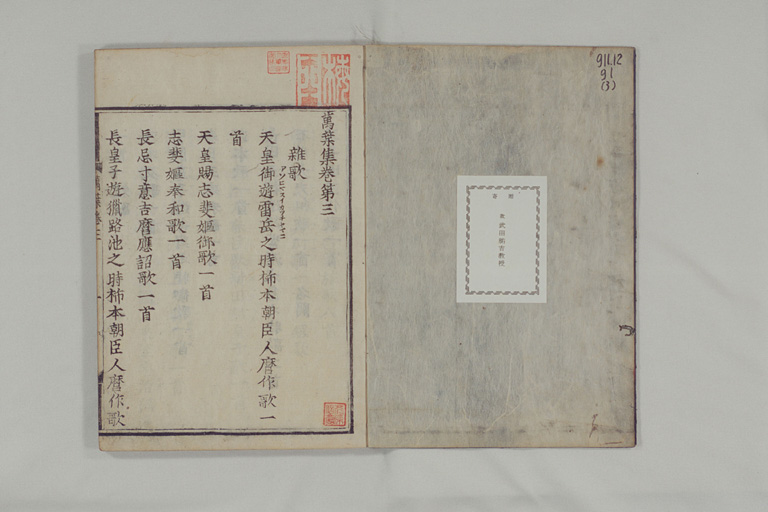 911.12
91
(3)
寄贈
故 武田祐吉教授
萬葉集巻第三
雜歌
天皇御遊雷岳之時柿本朝臣人麿作歌一
首
天皇賜志斐嫗御歌一首
志斐嫗奉和歌一首
長忌寸意吉麿應詔歌一首
長皇子遊獵路池之時柿本朝臣人麿作歌